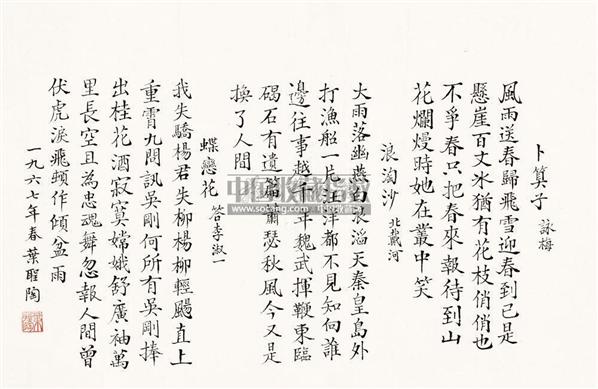 卜算子 詠梅
風雨送春歸飛雪迎春到已是
懸崖百丈氷猶有花枝俏俏也
不爭春只把春來報待到山
花爛熳時她在叢中笑
浪淘沙 北戴河
大雨落幽燕白浪滔天秦皇島外
打漁船一片汪洋都不見知向誰
邊往事越千年魏武揮鞭東臨
碣石有遺篇蕭瑟秋風今又是
換了人間
蝶戀花 答李淑一
我失驕楊君失柳楊柳輕颺直上
重霄九問訊吳剛何所有吳剛捧
出桂花酒寂寞嫦娥舒廣袖萬
里長空且為忠魂舞忽報人間曾
伏虎淚飛頓作傾盆雨
一九六七年春葉聖陶